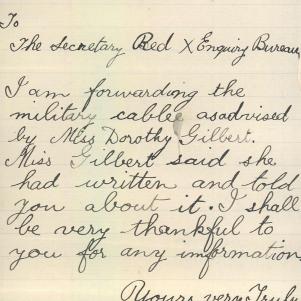 To
The Secretary Red X Enquiry Bureau,
I am forwarding the
military cablee asadvised
by Miss Dorothy Gilbert.
Miss Gilbert said she
had written and told
you about it. I shall
be very thankful to
you for any imformation
Yours very Truly